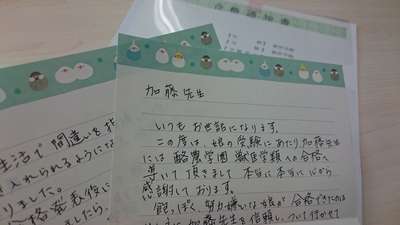 合格通知書
加藤先生
いつもお世話になります。
この度は、娘の受験にあたり加藤先生
には酪農学園 獣医学類への合格へ
導いて頂きまして 本当に本当に心から
感謝しております。
飽っぽく、努力嫌いな娘が合格できたのは
加藤先生を信頼し、ついて行かせて
生活で間違いを指
入れられるようにな
りました。
合格発表後に
ましたら、